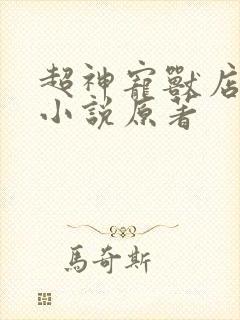 超神寵獸店
小說原著
馬奇斯